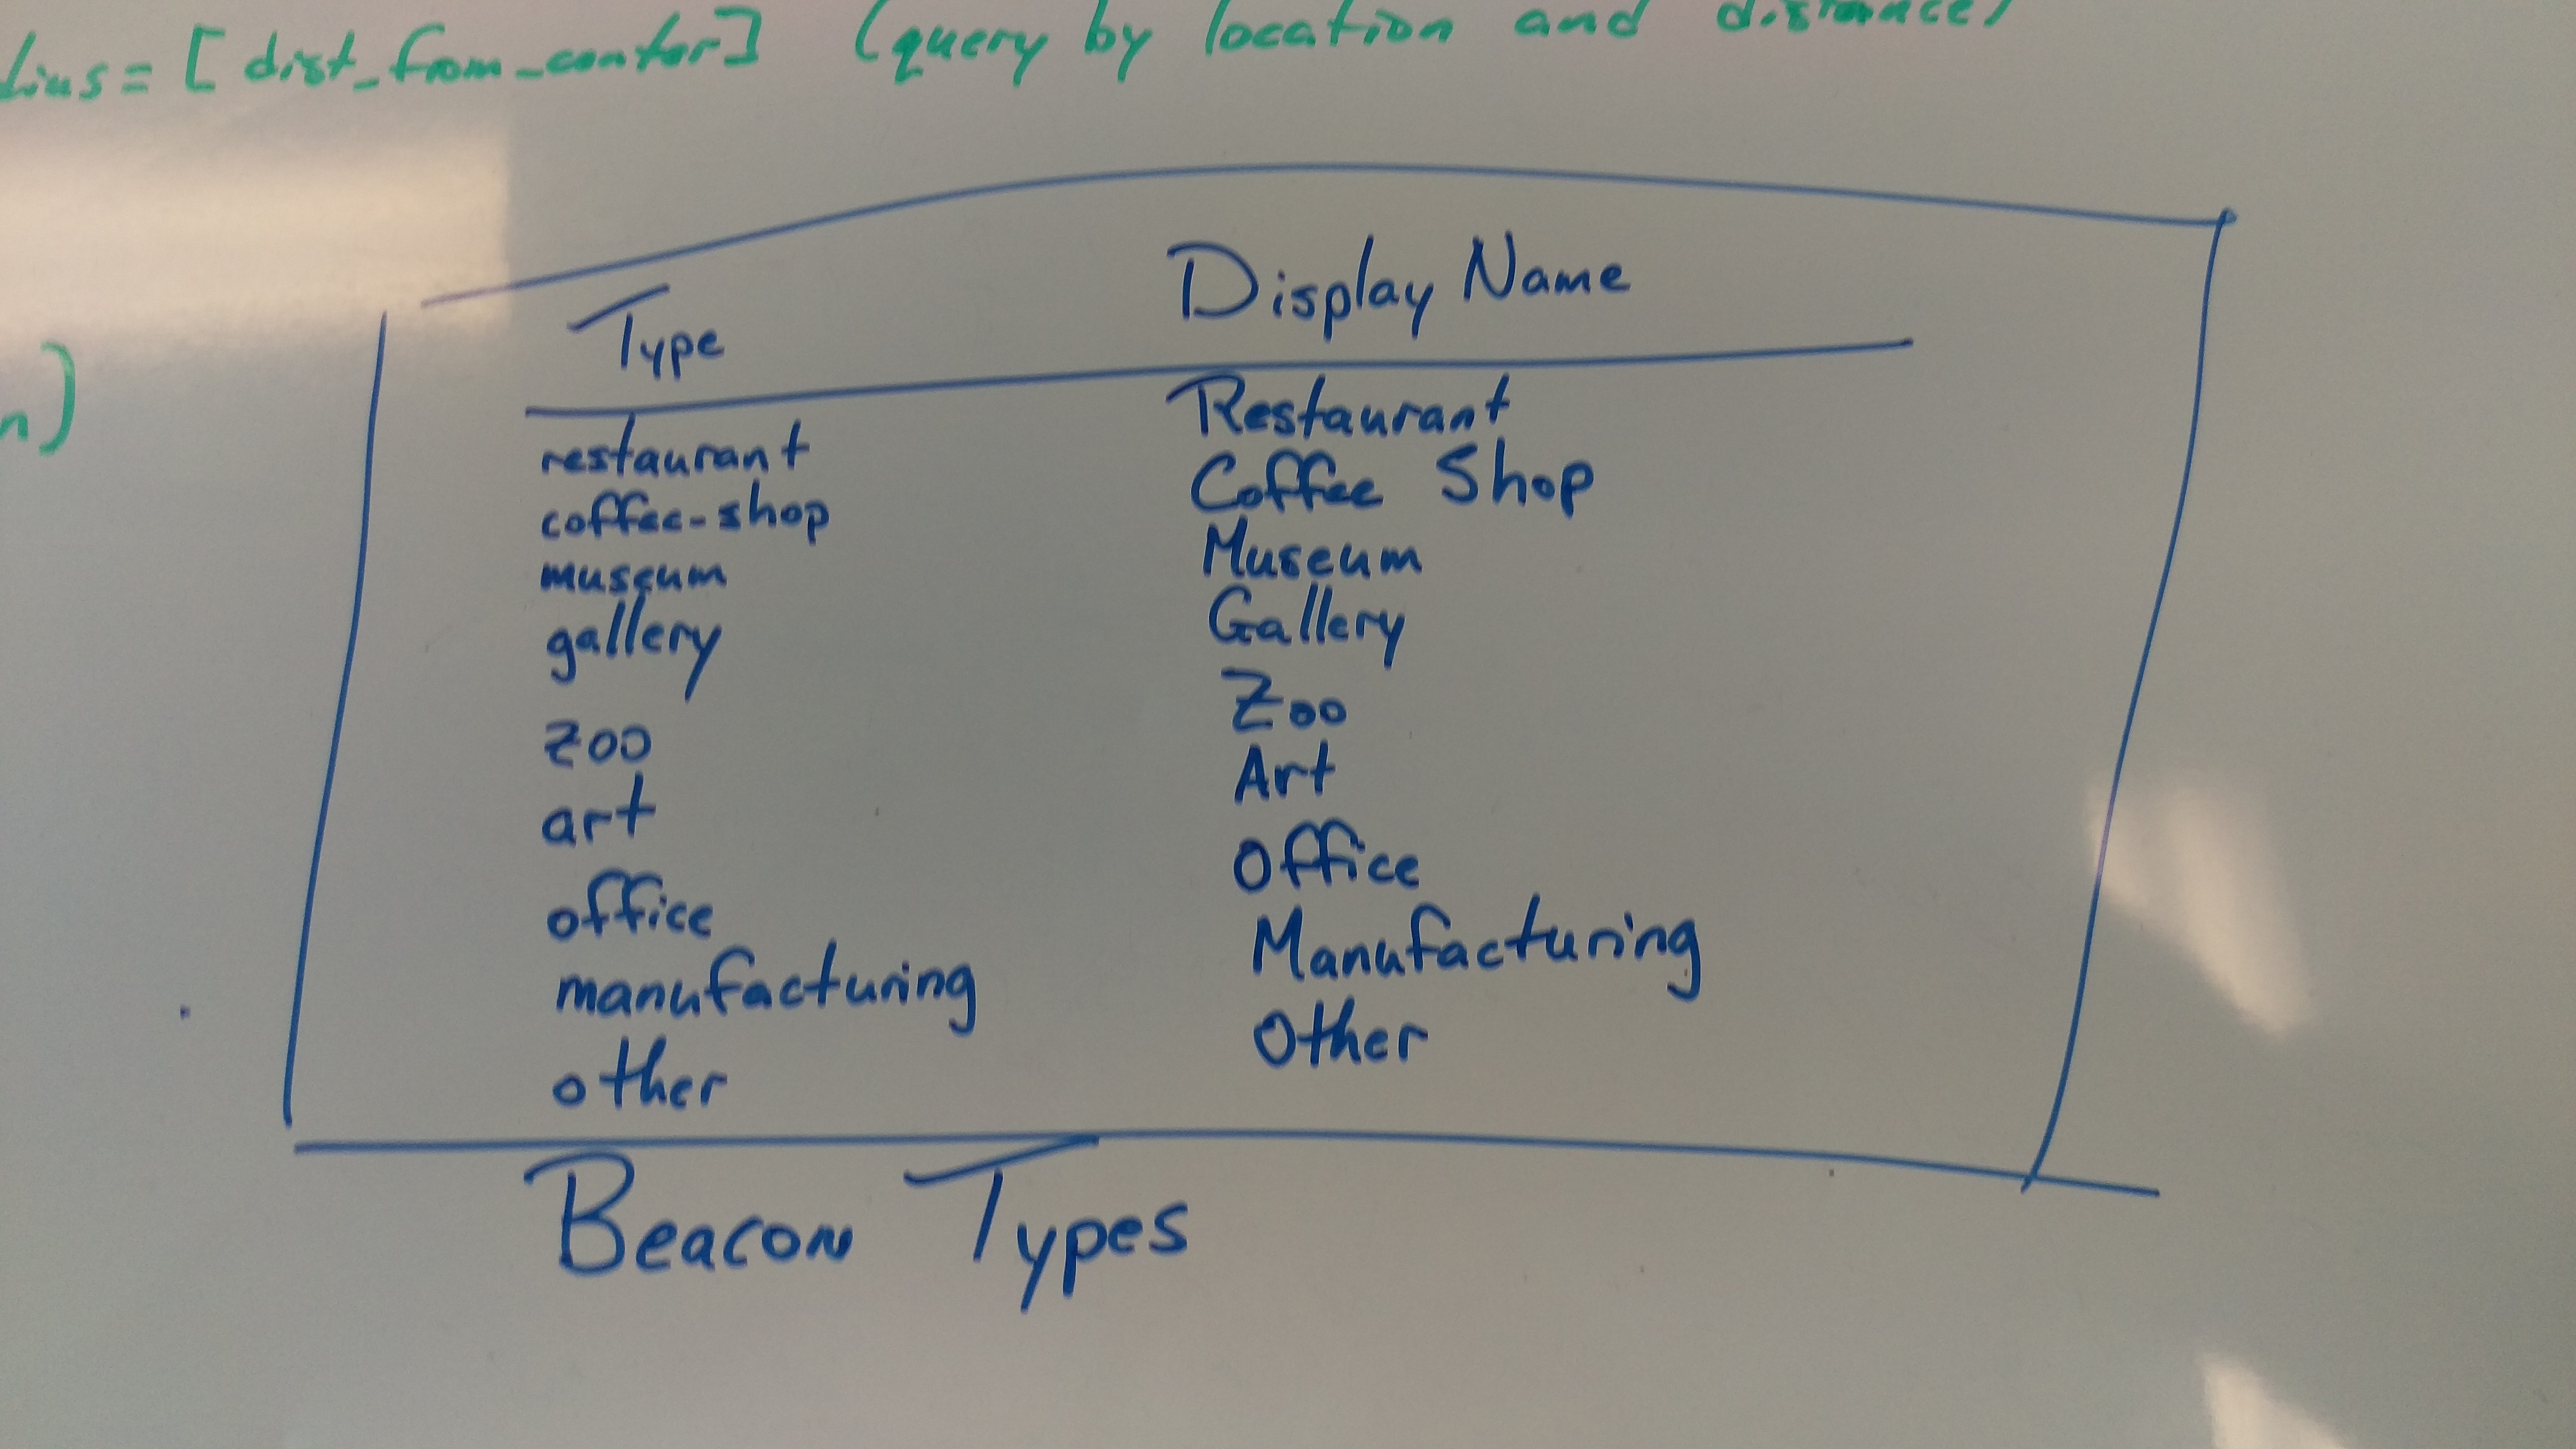 dius=[dist_from_center] (query by location and distance)
n)
Type Display Name
restaurant Restaurant
coffee-shop Coffee Shop
museum Museum
gallery Gallery
zoo Zoo
art Art
office Office
manufacturing Manufacturing
other Other
Beacon Types